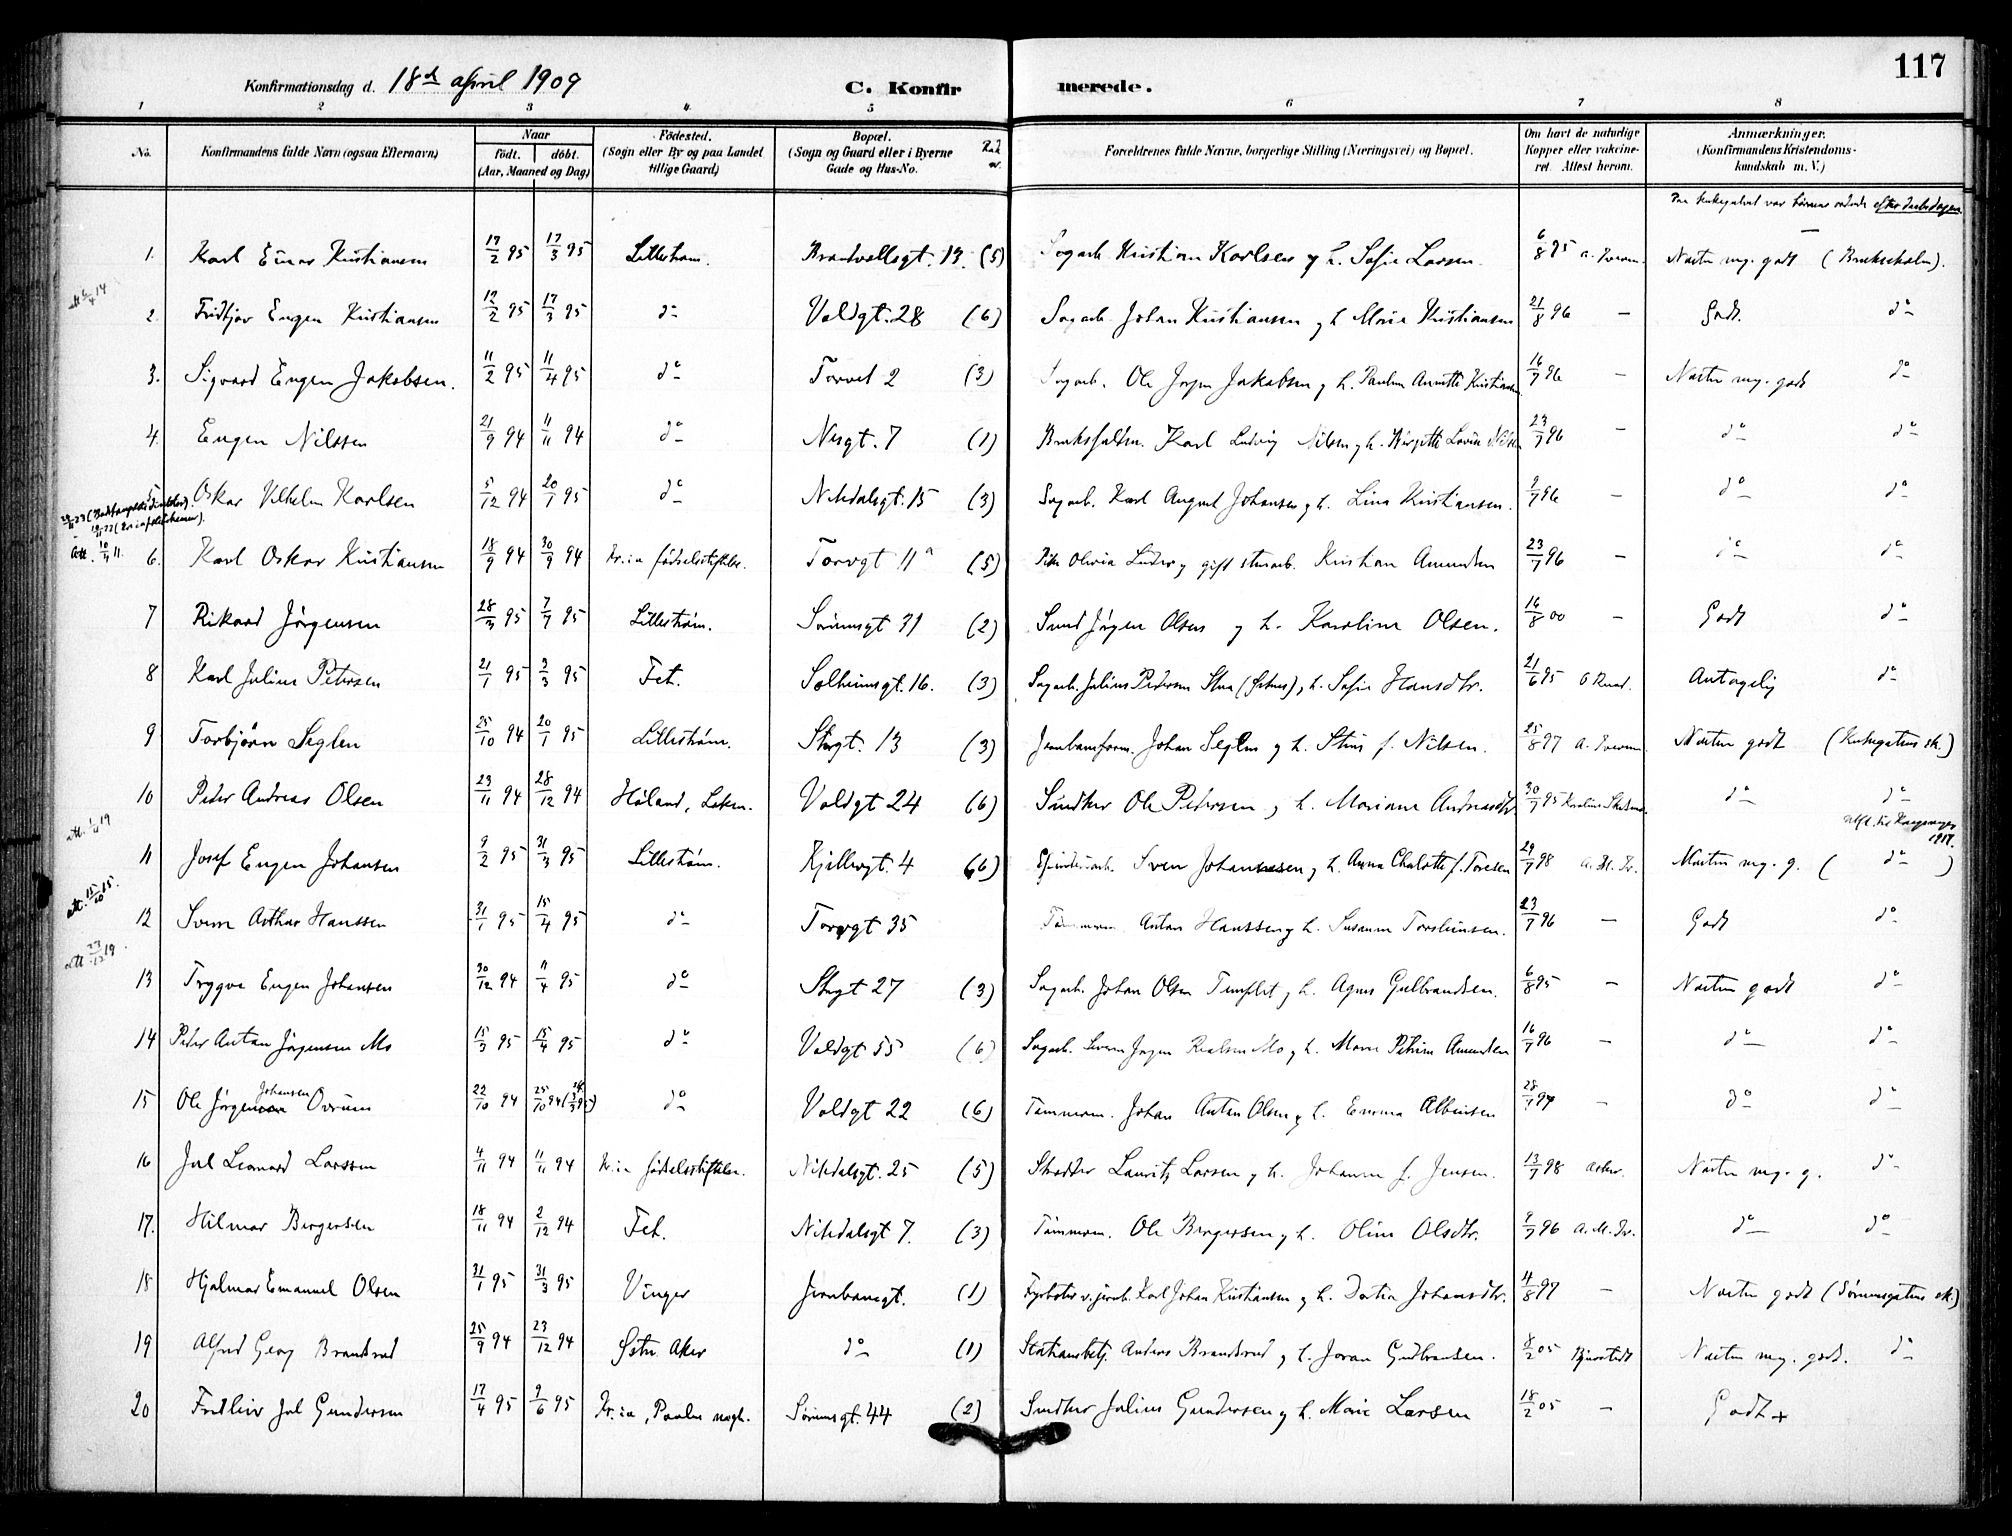 117
Konfirmationsdag d. 18de april 1909 C. Konfirmerede.
1 2 3 4 5 6 7 8
No. Konfirmandens fulde Navn (ogsaa Efternavn) Naar födt. döbt. (Aar, Maaned og Dag) Födested. (Sogn eller By og paa Landet tillige Gaard) Bopæl. (Sogn og Gaard eller i Byerne Gade og Hus-No. Forældrenes fulde Navne, borgerlige Stilling (Næringsvei) og Bopæl. Om havt de naturlige Kopper eller vakcineret. Attest herom. Anmærkninger. (Konfirmandens Kristendomskundskab m. V.)
var börnene ordnede efter daabsdagen
1. Karl Einar Kristiansen 17/2 95 17/3 95 Lilleström. Brandvollsgt. 13. (5) Sagarb. Kristian Karlsen og h. Sofie Larsen 6/8 95 Næsten mg. godt (Brukskolen).
2. Fridtjov Eugen Kristiansen 12/2 95 17/3 95 do Voldgt. 28 (6) Sagarb. Johan Kristiansen og h. Marie Kristiansen 21/8 96 — Godt. do
3. Sigvard Eugen Jakobsen. 11/2 95 11/4 95 do Torvet 2 (3) Sagarb. Ole Jørgen Jakobsen og h. Pauline Annette Kristiansen 16/7 96 — Næsten mg. godt do
4. Eugen Nilssen 21/9 94 11/11 94 do Nygt. 7 (1) Karl Ludvig Nilsen og h. Birgitte Lovise Nilsen 23/7 96 — do do
5. Oskar Vilhelm Karlsen 5/12 94 20/1 95 do Nitedalsgt. 15 (3) Sagarb. Karl August Johansen og h. Lina Kristiansen. 9/7 96 — do do
att. 10/4 11. 6. Karl Oskar Kristiansen 18/9 94 30/9 94 Kr.ia fødselsstiftelse. Torvgt 11a (5) Pike Olivia gift Kristian Amundsen 23/7 96 — do do
7 Rikard Jørgensen 28/3 95 7/7 95 Lilleström. Sörumsgt 31 (2) Smed Jörgen Olsen og h. Karoline Olsen. 16/8 00 — Godt do
8 Karl Julius Petersen 21/1 95 3/3 95 Fet. Solheimsgt. 16. (3) Sagarb. Julius Pedersen og h. Sofie Hansdtr. 21/6 95 Antagelig do
9 Torbjörn Seglen 25/10 94 20/1 95 Lilleström. Storgt. 13 (3) Johan Seglen og h. Stine f. Nilsen. 25/8 97 Næsten godt (Kirkegatens sk.)
10 Peder Andreas Olsen 23/11 94 28/12 94 Höland, Løken. Voldgt 24 (6) Snedker Ole Petersen og h. Mariane Andreasdtr. 30/7 95 do do
att. 1/4 19 11 Josef Eugen Johansen 9/2 95 31/3 95 Lilleström. Kjellergt. 4 (6) Sven Johannessen og h. Anna Charlotte f. Toresen 29/7 98 Næsten mg. g. ( do )
att. 15/10 15. 12 Svein Arthur Hanssen 31/1 95 15/4 95 do Torvgt 35 Tömmerm. Anton Hanssen og h. Susanne Torsteinsen. 23/7 96 — Godt do
att 23/12 19. 13 Trygve Eugen Johansen 30/12 94 11/4 95 do Storgt 27 (3) Sagarb. Johan Olsen og h. Agnes Gulbrandsen. 6/8 95 — Næsten godt do
14 Peder Anton Jørgensen Mo 15/3 95 15/4 95 do Voldgt 55 (6) Sagarb. Mo og h. Maren Petrine Amundsen 16/7 96 — do do
15 Ole Jörgen Johansen Ovrum 22/10 94 25/10 94 do Voldgt 22 (6) Tömmerm. Johan Anton Olsen og h. Emma Albinsen 28/7 97 — do do
16 Jul Leonard Larssen 4/11 94 11/11 94 Kr.ia fødselsstiftelse. Nitedalsgt. 25 (5) Skrædder Lauritz Larsen og h. Johanne f. Jensen. 13/7 98 Næsten mg. g. do
17. Hilmar Bergersen 18/11 94 2/12 94 Fet. Nitedalsgt 7. (3) Tömmerm. Ole Bergersen og h. Oline Olsdtr. 9/7 96 do do
18 Hjalmar Emanuel Olsen 31/1 95 31/3 95 Vinger Jernbanegt. (1) Fyrböter v. jernb. Karl Johan Kristiansen og h. Dortea Johansdtr. 4/8 97 — Næsten godt (Sörumsgatens sk.)
19 Alfred Georg Brandsrud 25/9 94 23/12 94 Aker do (1) Stationsbetj. Anders Brandsrud og h. Joran Gudbransen. 8/2 05 Næsten mg. godt. do
20 Fritleiv Jul Gundersen 17/4 95 9/6 95 Kr.ia, Paulus mngh. Sörumsgt. 44 (2) Snedker Julius Gundersen og h. Marie Larsen 18/2 05 — Godt +